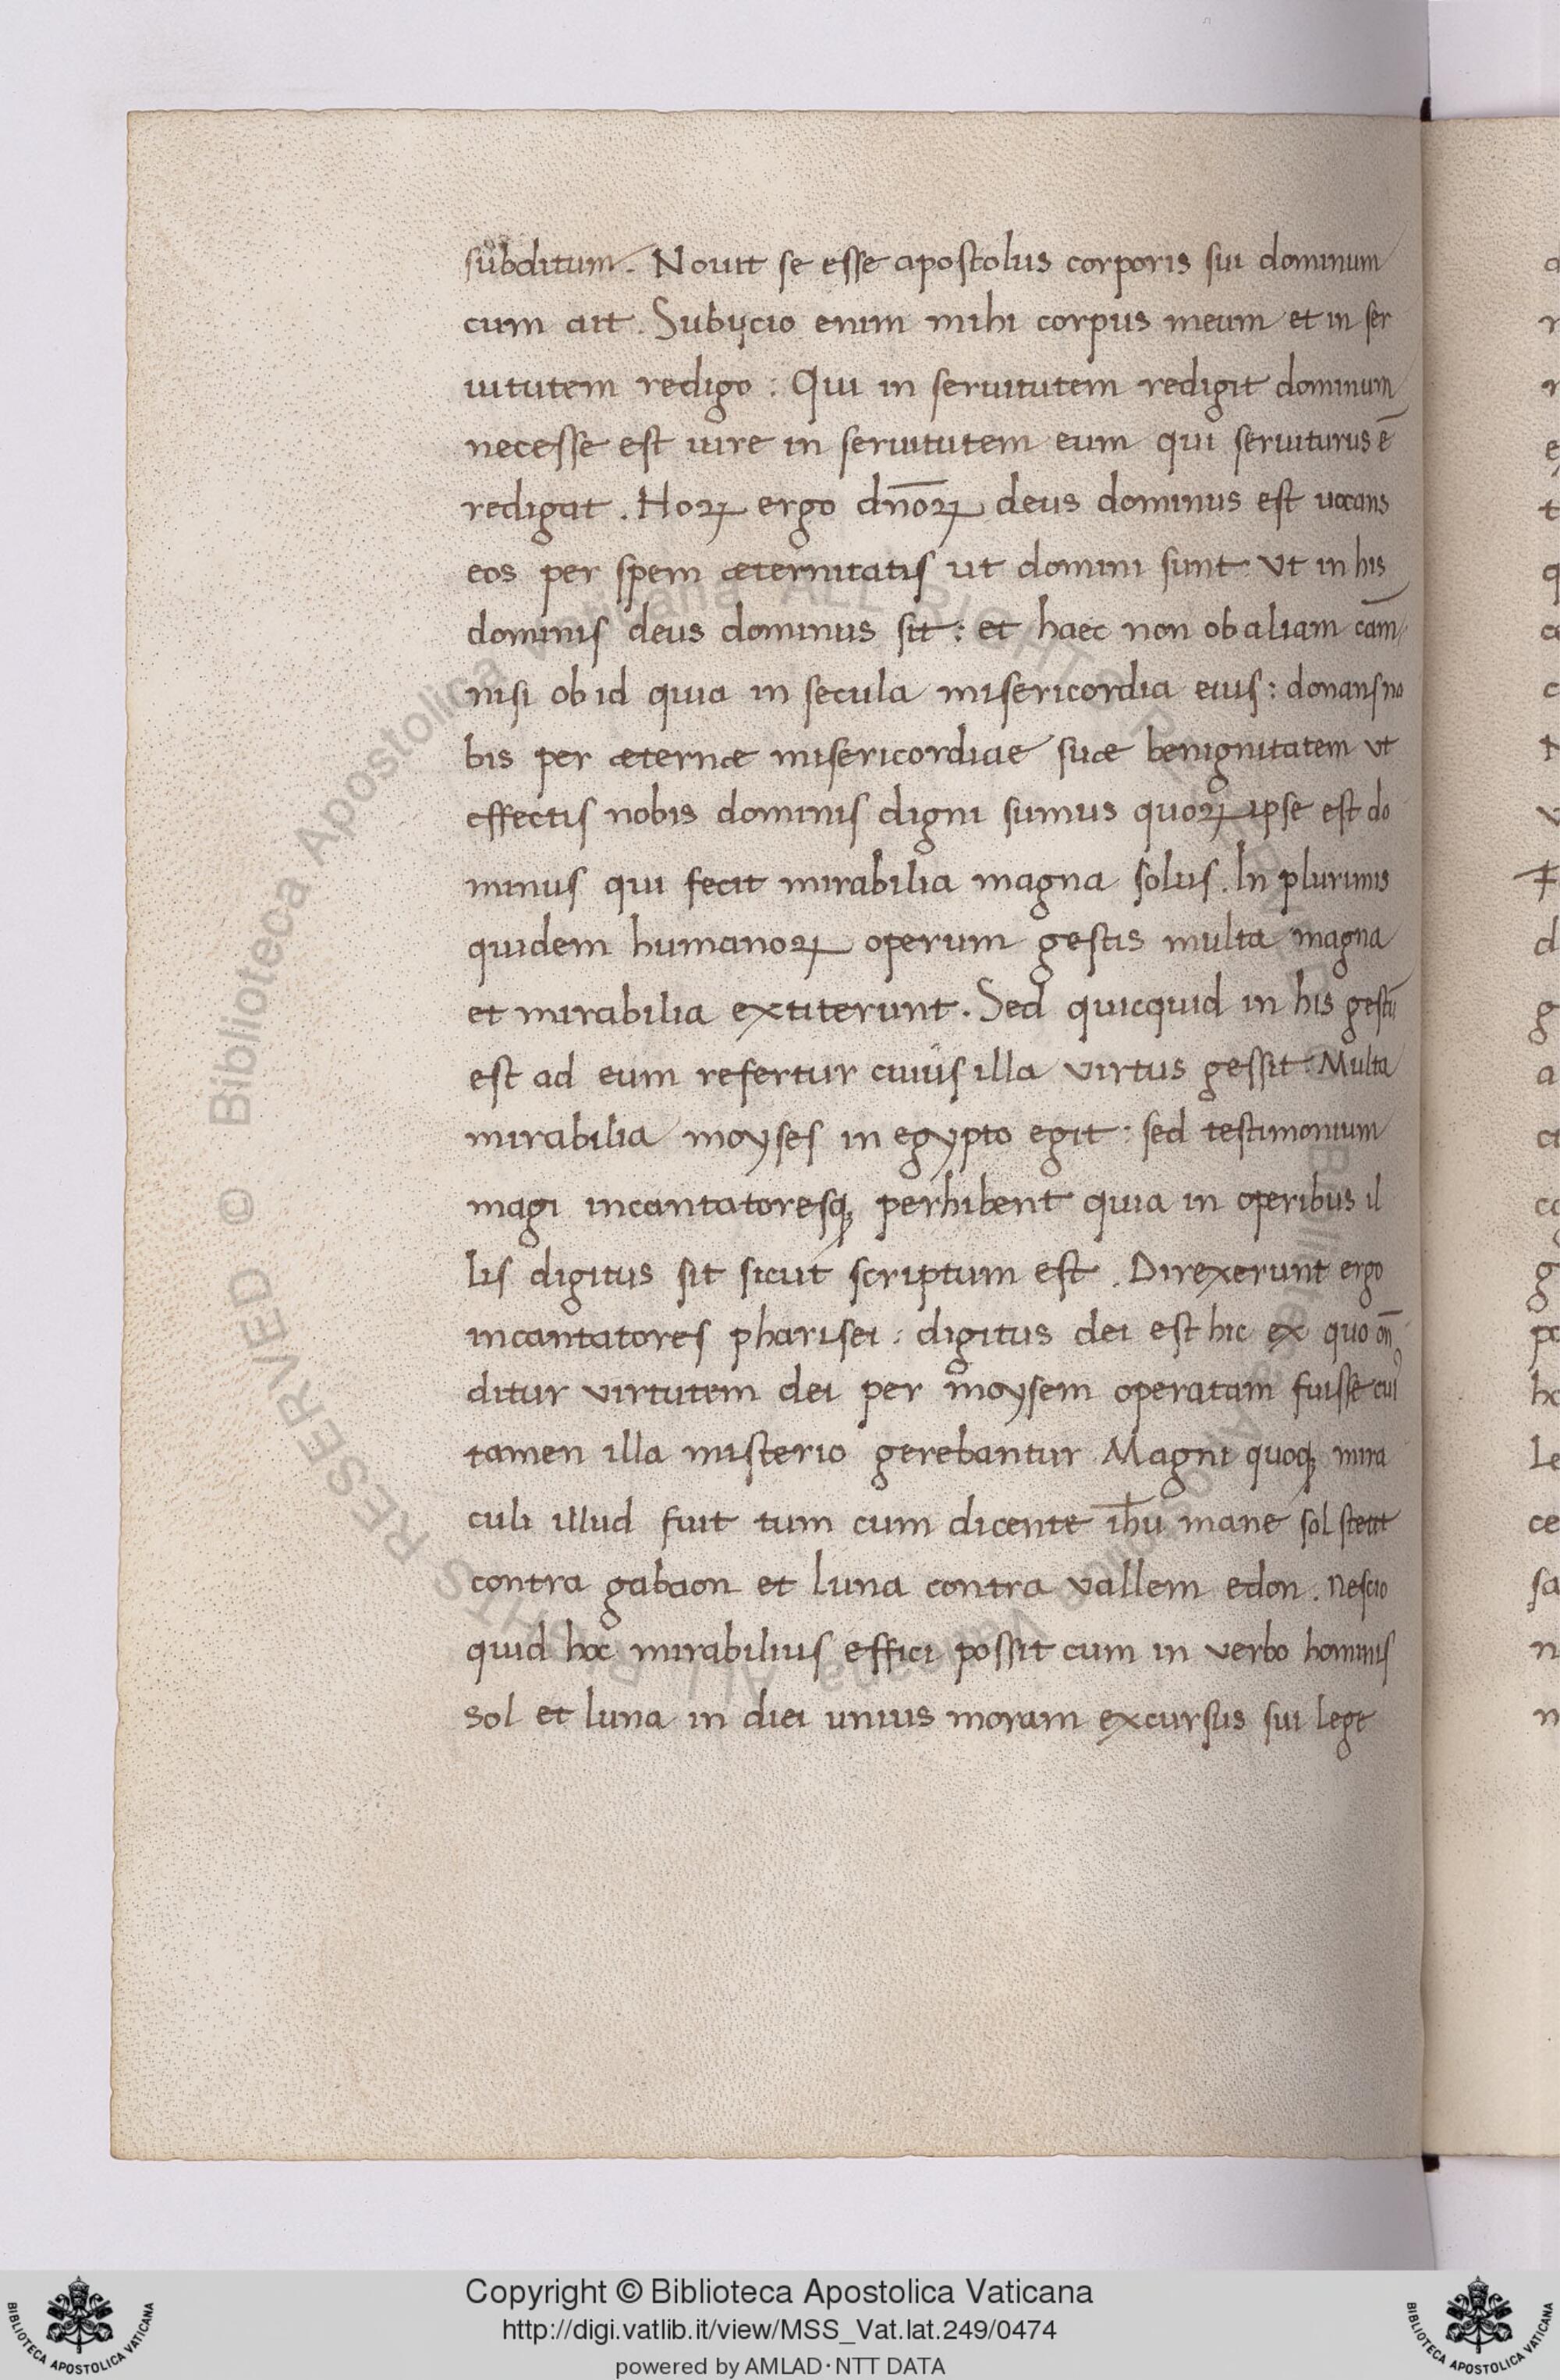 subditum. Nouit se esse apostolus corporis sui dominum
cum ait. Subijcio enim mihi corpus meum et in ser
uitutem redigo: Qui in seruitutem redigit dominum
necesse est iure in seruitutem eum qui seruiturus ē
redigat. Hoꝝ ergo dn̄oꝝ deus dominus est uocans
eos per spem æternitatis ut domini sunt vt in his
dominis deus dominus sit: et haec non ob aliam cām
nisi ob id quia in secula misericordia eius: donans no
bis per æternæ misericordiae suæ benignitatem vt
effectis nobis dominis digni sumus quoꝝ ipse est do
minus qui fecit mirabilia magna solus. In plurimis
quidem humanoꝝ operum gestis multa magna
et mirabilia extiterunt. Sed quicquid in his gestū
est ad eum refertur cuius illa virtus gessit: Multa
mirabilia moyses in egypto egit: sed testimonium
magi incantatoresqꝫ perhibent quia in operibus il
lis digitus sit sicut scriptum est. Direxerunt ergo
incantatores pharisei: digitus dei est hic ex quo on̄
ditur virtutem dei per moysem operatam fuisse cuiꝰ
tamen illa misterio gerebantur Magni quoqꝫ mira
culi illud fuit tum cum dicente ihū mane sol stetit
contra gabaon et luna contra vallem edon. nescio
quid hoc mirabilius effici possit cum in verbo hominis
sol et luna in diei unius moram excursus sui lege
Biblioteca Apostolica Vaticana ALL RIGHTS RESERVED ©
Copyright © Biblioteca Apostolica Vaticana
http://digi.vatlib.it/view/MSS_Vat.lat.249/0474
powered by AMLAD·NTT DATA
BIBLIOTECA APOSTOLICA VATICANA
BIBLIOTECA APOSTOLICA VATICANA